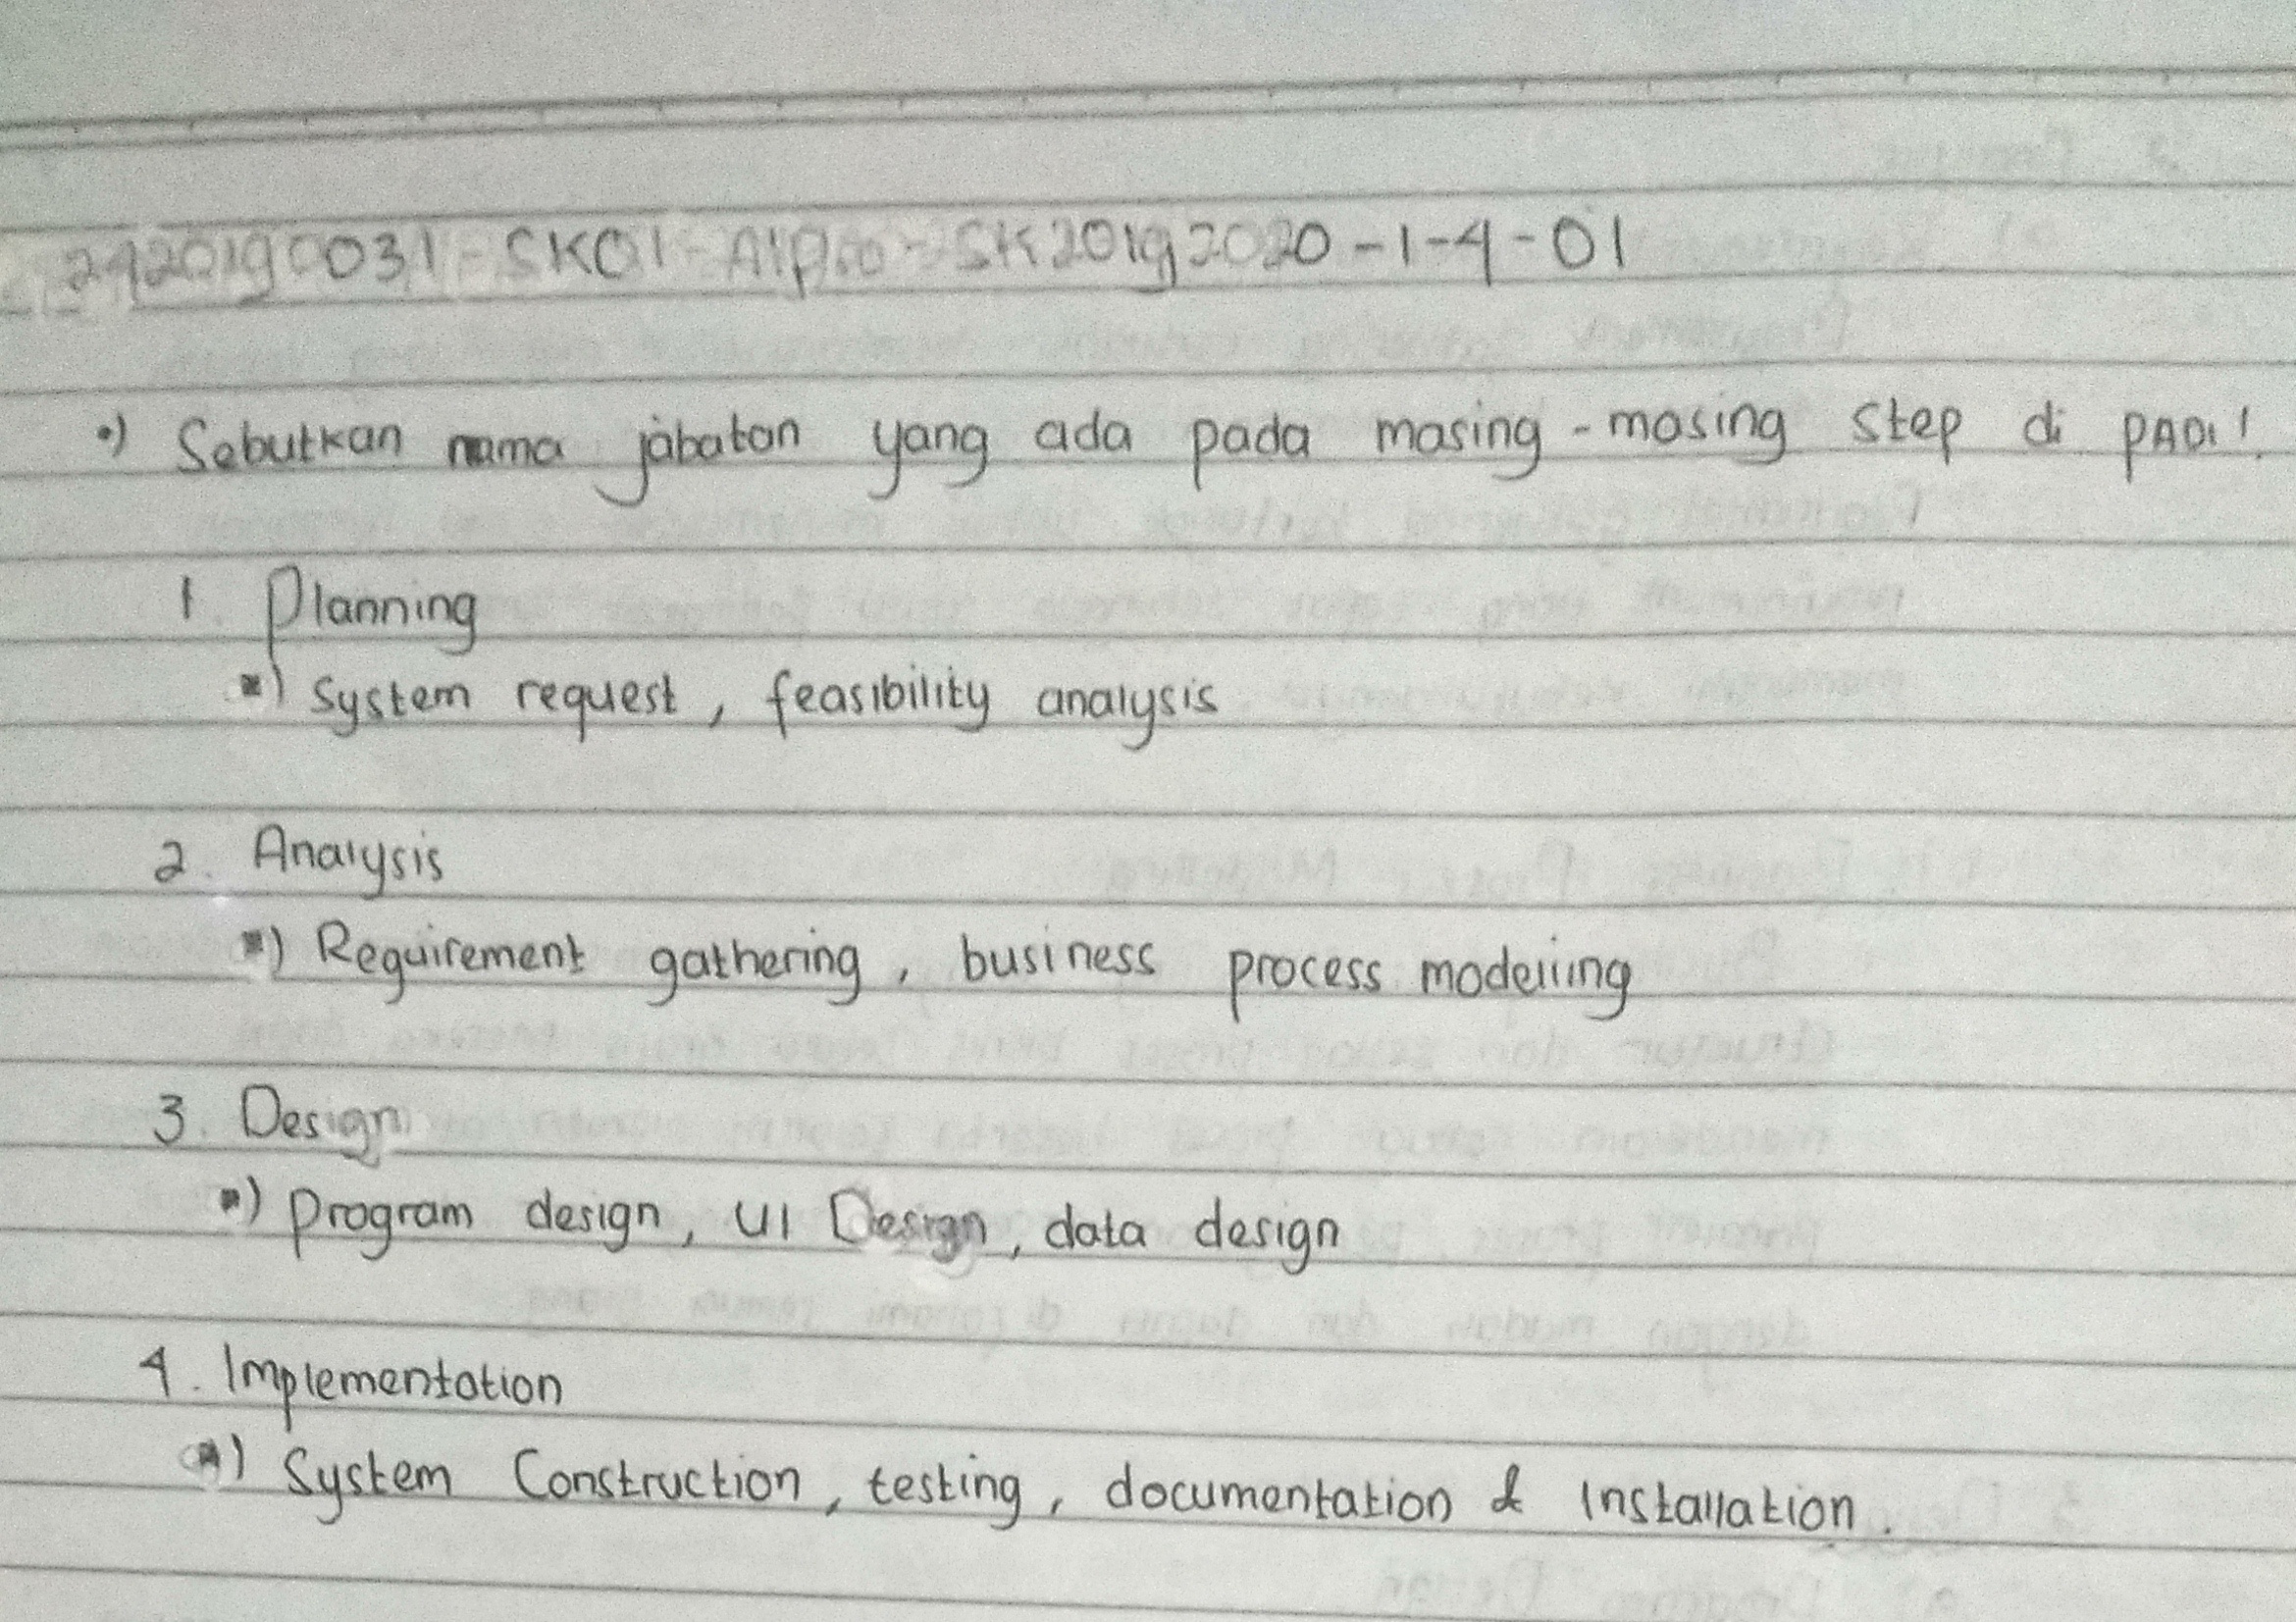 2420190031-SK01-Alpro-SK20192020-1-4-01
•) Sebutkan nama jabatan yang ada pada masing-masing step di PADI!
1. Planning
*) System request, feasibility analysis
2. Analysis
*) Requirement gathering, business process modelling
3. Design
*) Program design, UI Design, data design
4. Implementation
*) System Construction, testing, documentation & Installation.